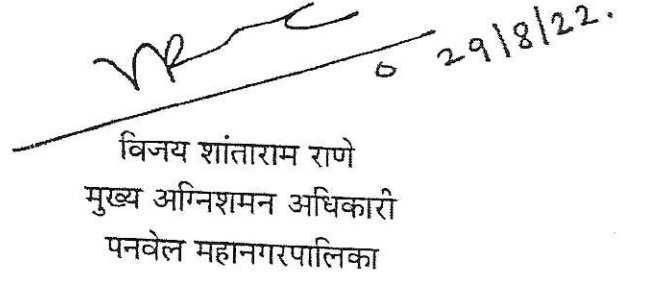 29/8/22.
विजय शांताराम राणे
मुख्य अग्निशमन अधिकारी
पनवेल महानगरपालिका